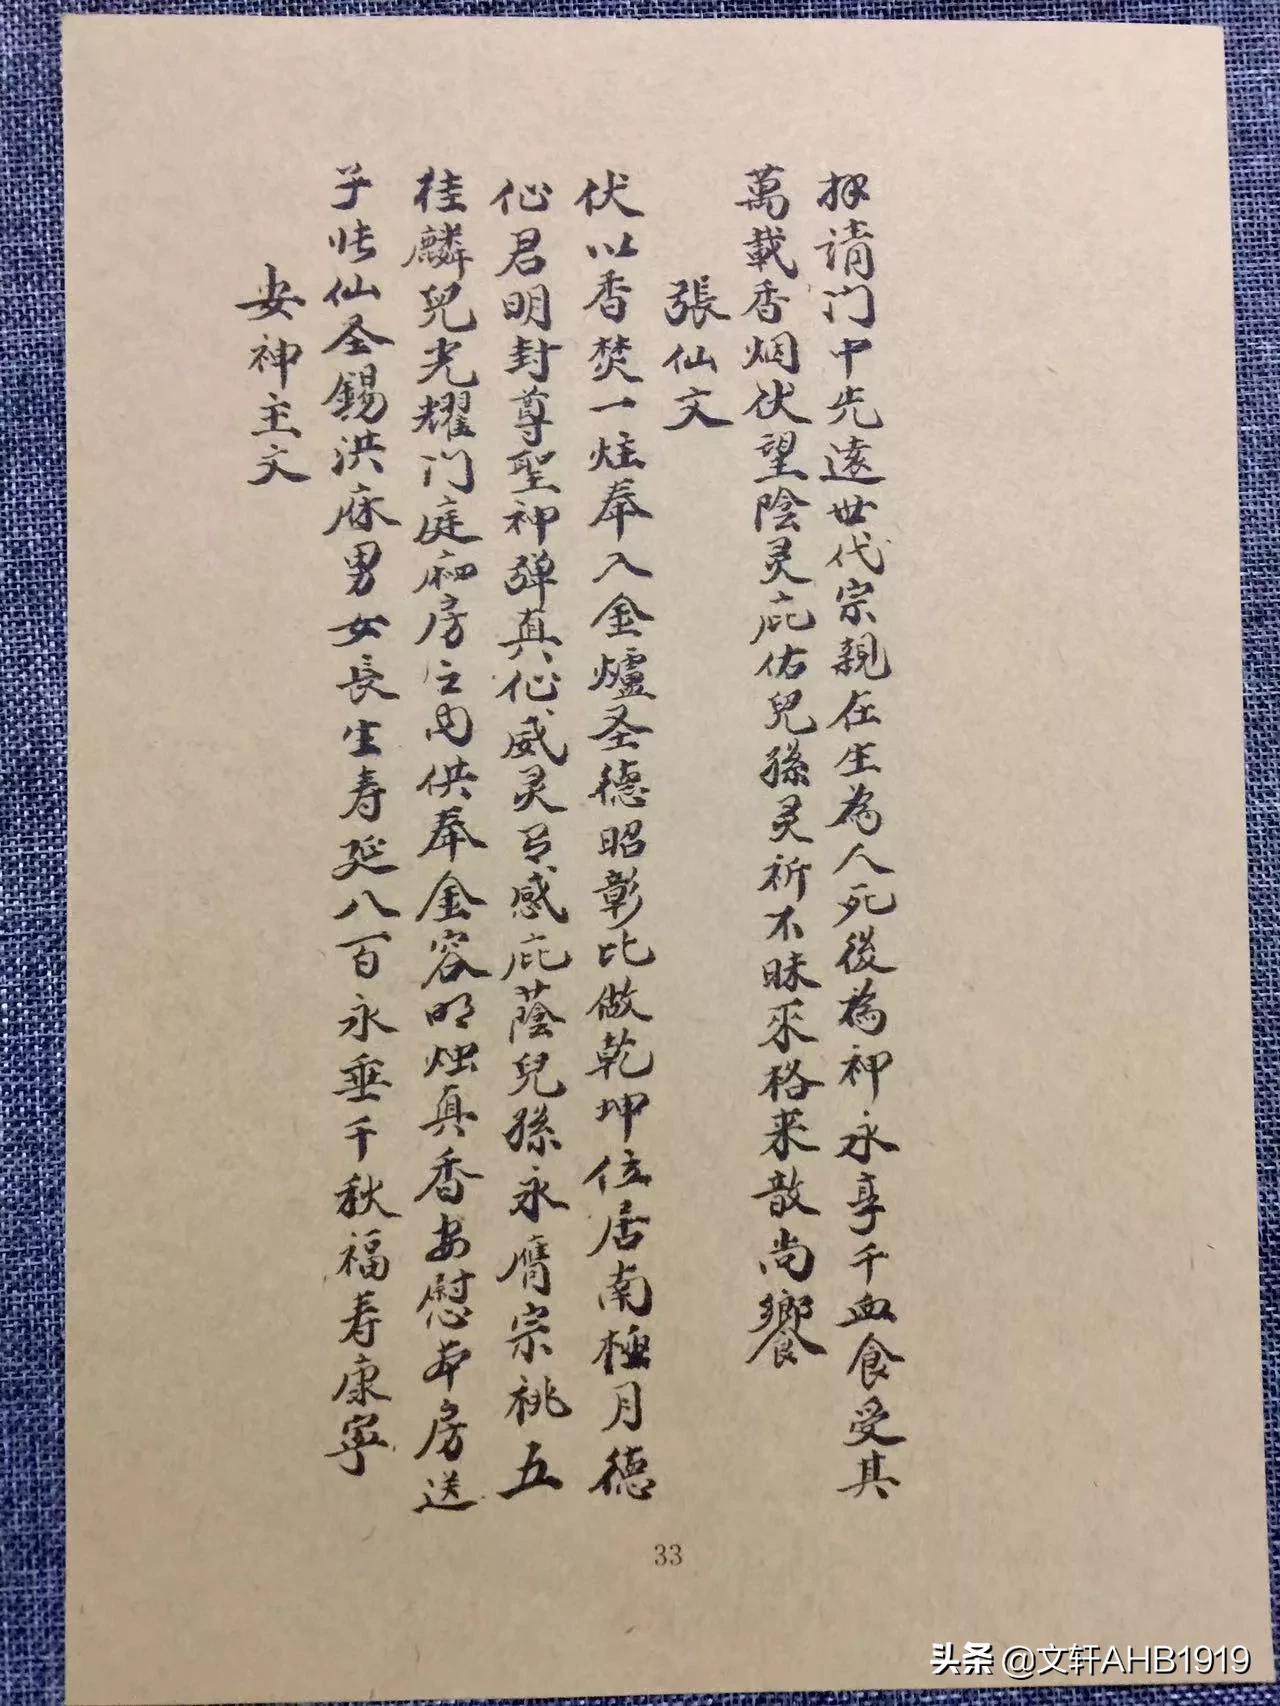 拜请门中先遠世代宗親在生為人死後為神永享千血食受其
萬載香烟伏望陰灵庇佑兒孫灵祈不昧来格来散尚饗
張仙文
伏以香焚一炷奉入金爐圣德昭彰比做乾坤位居南極月德
君明封尊聖神弹真威灵感庇蔭兒孫永膺宗祧五
桂麟兒光耀门庭房之内供奉金容明烛真香安慰本房送
子张仙圣錫洪庥男女長生寿延八百永垂千秋福寿康寧
安神主文
33
头条 @文轩AHB1919